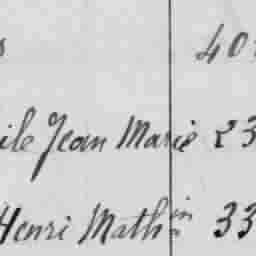 s 40
ile Jean Marie 23
Henri Mathin 33